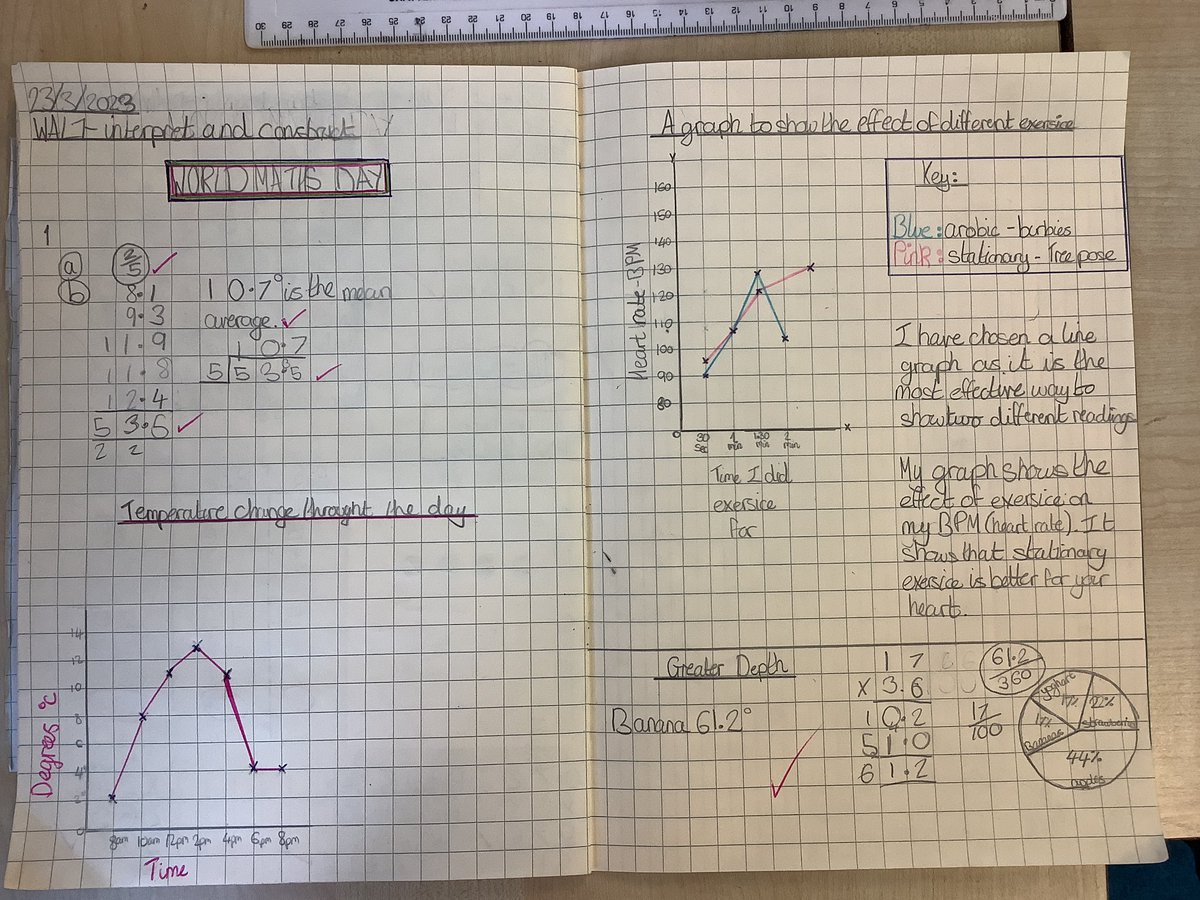 30 29 28 27 26 25 24 23 22 21 20 19 18 17 16 15 14 13 12 11 10 9 8 7 6 5 4 3 2 1 0
23/3/2023
WALT- interpret and construct
WORLD MATHS DAY
1
a 2/5
b 8.1
9.3
11.9
11.8
12.4
53.5
2 2
10.7° is the mean
average.
10.7
5 53.35
Temperature change throught the day
Degrees °C
14
12
10
8
6
4
2
0
8am 10am 12pm 2pm 4pm 6pm 8pm
Time
A graph to show the effect of different exersice
Y
Heart rate-BPM
160
150
140
130
120
110
100
90
80
0
30 sec 1 min 1:30 min 2 min x
Time I did
exersice
for
Key:
Blue: arobic - burbies
Pink: stationary - Tree pose
I have chosen a line
graph as it is the
most effective way to
show two different readings
My graph shows the
effect of exersice on
my BPM (heart rate). It
shows that stationary
exersice is better for your
heart.
Greater Depth
Banana 61.2°
17
x 3.6
10.2
51.0
61.2
61.2/360
17/100
Yoghurt
17%
22%
strawberries
17%
Bananas
44%
apples